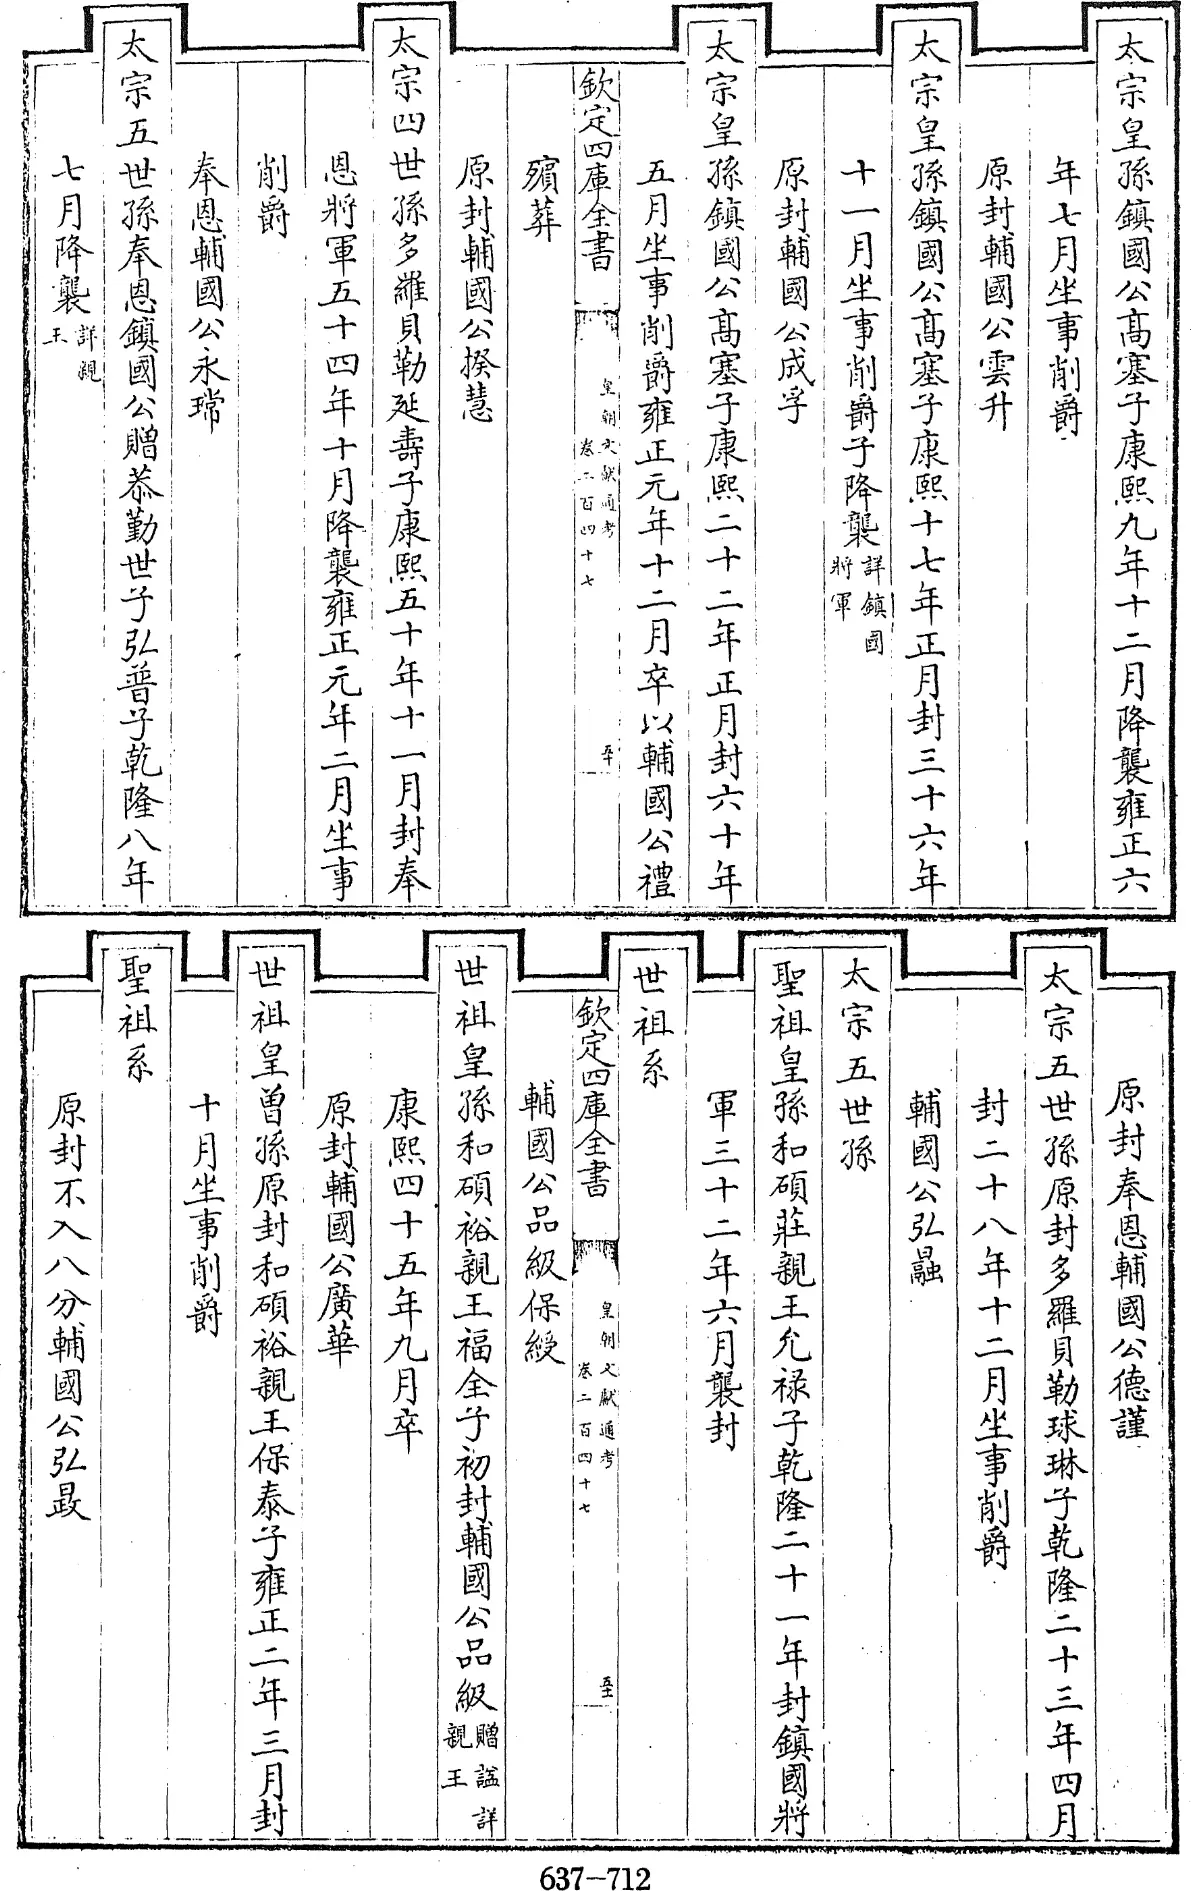 太宗皇孫鎮國公高塞子康熙九年十二月降襲雍正六
年七月坐事削爵
原封輔國公雲升
太宗皇孫鎮國公高塞子康熙十七年正月封三十六年
十一月坐事削爵子降襲詳鎮國將軍
原封輔國公成孚
太宗皇孫鎮國公高塞子康熙二十二年正月封六十年
五月坐事削爵雍正元年十二月卒以輔國公禮
欽定四庫全書
皇朝文獻通考
卷二百四十七
五十
殯葬
原封輔國公揆慧
太宗四世孫多羅貝勒延壽子康熙五十年十一月封奉
恩將軍五十四年十月降襲雍正元年二月坐事
削爵
奉恩輔國公永瑺
太宗五世孫奉恩鎮國公贈恭勤世子弘普子乾隆八年
七月降襲詳親王
原封奉恩輔國公德謹
太宗五世孫原封多羅貝勒球琳子乾隆二十三年四月
封二十八年十二月坐事削爵
輔國公弘融
太宗五世孫
聖祖皇孫和碩莊親王允祿子乾隆二十一年封鎮國將
軍三十二年六月襲封
世祖系
欽定四庫全書
皇朝文獻通考
卷二百四十七
五十一
輔國公品級保綬
世祖皇孫和碩裕親王福全子初封輔國公品級贈諡詳親王
康熙四十五年九月卒
原封輔國公廣華
世祖皇曾孫原封和碩裕親王保泰子雍正二年三月封
十月坐事削爵
聖祖系
原封不入八分輔國公弘晸
637-712